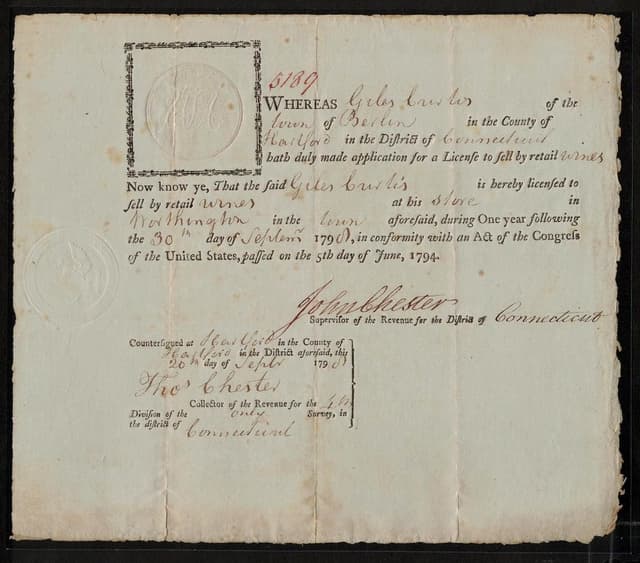 5189
WHEREAS Giles Curtis of the
town of Berlin in the County of
Hartford in the District of Connecticut
hath duly made application for a License to sell by retail wines
Now know ye, That the said Giles Curtis is hereby licensed to
sell by retail wines at his store in
Worthington in the town aforesaid, during One year following
the 30th day of Septemr 1798, in conformity with an Act of the Congress
of the United States, passed on the 5th day of June, 1794.
John Chester
Supervisor of the Revenue for the District of Connecticut
Countersigned at Hartford in the County of
Hartford in the District aforesaid, this
20th day of Septr 1798
Thos Chester
Collector of the Revenue for the 4th
Division of the only Survey, in
the district of Connecticut